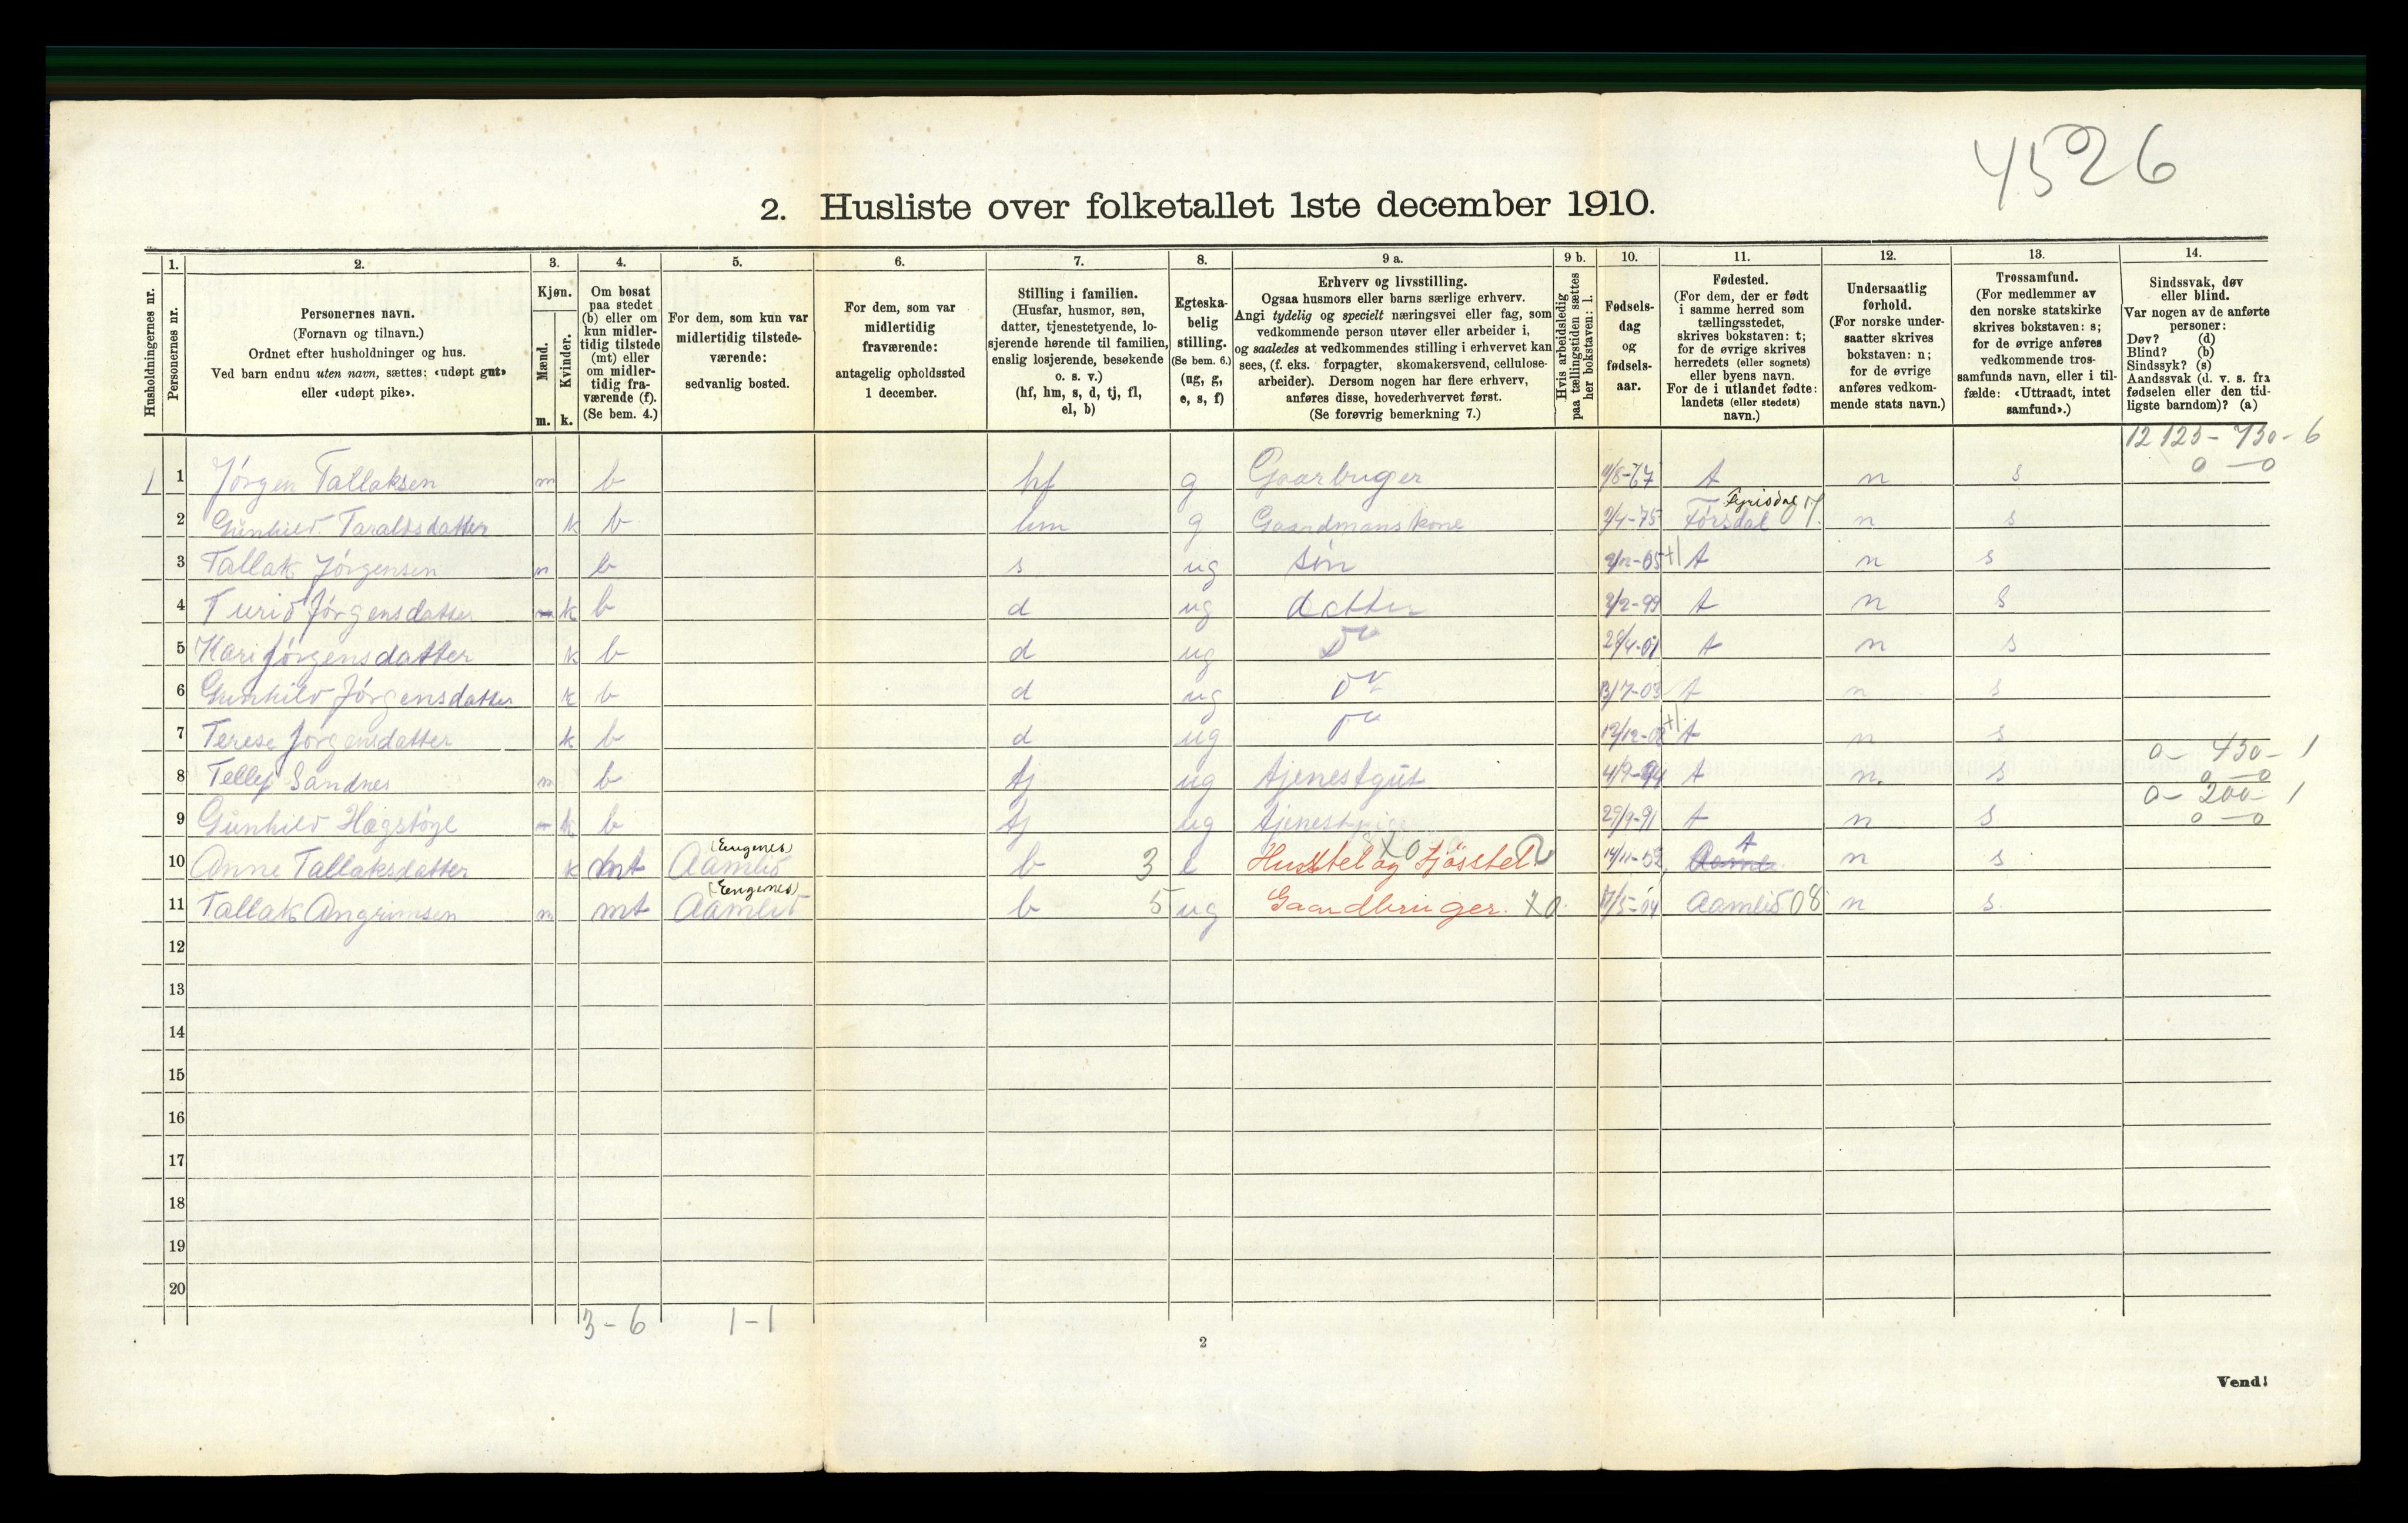 4526
2. Husliste over folketallet 1ste december 1910.
1. 2. 3. 4. 5. 6. 7. 8. 9 a. 9 b. 10. 11. 12. 13. 14.
Husholdningernes nr.
Personernes nr.
Personernes navn.
(Fornavn og tilnavn.)
Ordnet efter husholdninger og hus.
Ved barn endnu uten navn, sættes: «udøpt gut»
eller «udøpt pike».
Kjøn.
Mænd.
Kvinder.
m. k.
Om bosat
paa stedet
(b) eller om
kun midler-
tidig tilstede
(mt) eller
om midler-
tidig fra-
værende (f).
(Se bem. 4.)
For dem, som kun var
midlertidig tilstede-
værende:
sedvanlig bosted.
For dem, som var
midlertidig
fraværende:
antagelig opholdssted
1 december.
Stilling i familien.
(Husfar, husmor, søn,
datter, tjenestetyende, lo-
sjerende hørende til familien,
enslig losjerende, besøkende
o. s. v.)
(hf, hm, s, d, tj, fl,
el, b)
Egteska-
belig
stilling.
(Se bem. 6.)
(ug, g,
e, s, f)
Erhverv og livsstilling.
Ogsaa husmors eller barns særlige erhverv.
Angi tydelig og specielt næringsvei eller fag, som
vedkommende person utøver eller arbeider i,
og saaledes at vedkommendes stilling i erhvervet kan
sees, (f. eks. forpagter, skomakersvend, cellulose-
arbeider). Dersom nogen har flere erhverv,
anføres disse, hovederhvervet først.
(Se forøvrig bemerkning 7.)
Hvis arbeidsledig
paa tællingstiden sættes
her bokstaven: l.
Fødsels-
dag
og
fødsels-
aar.
Fødested.
(For dem, der er født
i samme herred som
tællingsstedet,
skrives bokstaven: t;
for de øvrige skrives
herredets (eller sognets)
eller byens navn.
For de i utlandet fødte:
landets (eller stedets)
navn.)
Undersaatlig
forhold.
(For norske under-
saatter skrives
bokstaven: n;
for de øvrige
anføres vedkom-
mende stats navn.)
Trossamfund.
(For medlemmer av
den norske statskirke
skrives bokstaven: s;
for de øvrige anføres
vedkommende tros-
samfunds navn, eller i til-
fælde: «Uttraadt, intet
samfund».)
Sindssvak, døv
eller blind.
Var nogen av de anførte
personer:
Døv? (d)
Blind? (b)
Sindssyk? (s)
Aandssvak (d. v. s. fra
fødselen eller den tid-
ligste barndom)? (a)
12 125- 730- 6
0 - 0
1 1 Jørgen Tallaksen m b hf g Gaarbruger 9/8-67 t n s
2 Gunhild Taraldsdatter k b hm g Gaardmanskone 2/4-75 Førsdal Fyrisdal n s
3 Tallak Jørgensen m b s ug søn 2/12-05 +1 t n s
4 Turid Jørgensdatter k b d ug datter 2/2-99 t n s
5 Kari Jørgensdatter k b d ug Do 29/4-01 t n s
6 Gunhild Jørgensdatter k b d ug Do 13/7-03 t n s
7 Terese Jørgensdatter k b d ug Do 12/12-08 +1 t n s
0- 430- 1
8 Tellef Sandnes m b tj ug tjenestgut 4/7-94 t n. s 0 - 0
0- 200- 1
9 Gunhild Høgstøyl k b tj ug tjenestpige 29/9-91 t n s 0 - 0
10 Anne Tallaksdatter k mt Aamlid (Eugenes) b 3 e Husstel og Fjøsstel 14/11-52 t n s
11 Tallak Angrimsen m mt Aamlid (Eugenes) b 5 ug Gaardbruger. 17/5-04 Aamlid 08 n s.
12
13
14
15
16
17
18
19
20
3-6 1-1
2
Vend!